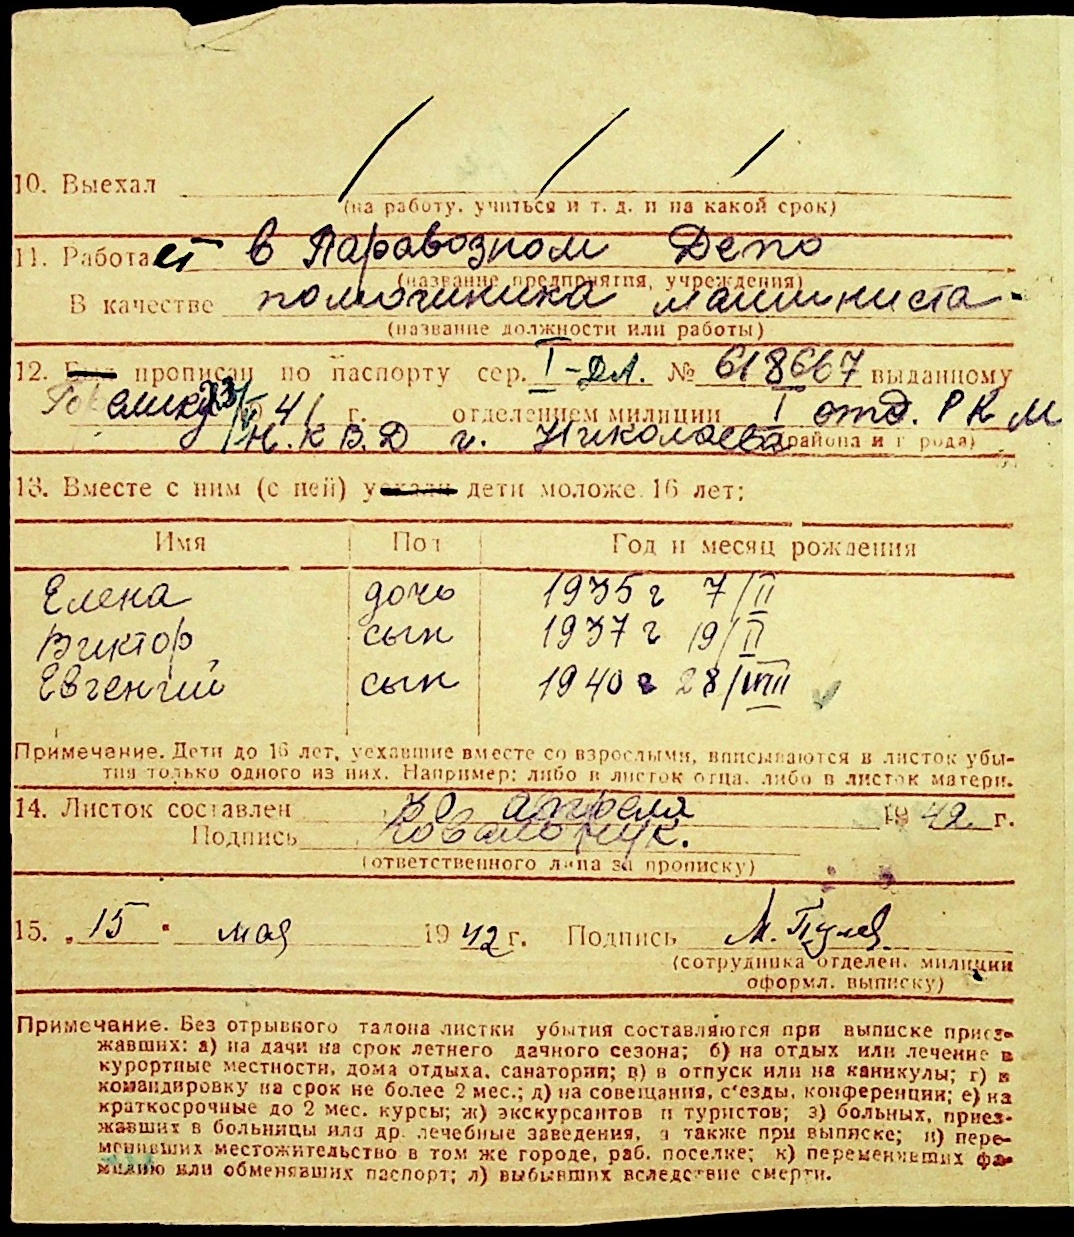 10. Выехал
(на работу, учиться и т. д. и на какой срок)
11. Работает в Паравозном Депо
(название предприятия, учреждения)
В качестве помочника машиниста
(название должности или работы)
12. прописан по паспорту сер. I-ДЛ. № 618667 выданному
23/VI 41 г. отделением милиции I отд. РКМ
Н.К.В.Д г. Николаева района и города)
13. Вместе с ним (с ней) у дети моложе 16 лет:
Имя Пол Год и месяц рождения
Елена дочь 1935 г 7/II
Виктор сын 1937 г 19/II
Евгений сын 1940 г 28/VIII
Примечание. Дети до 16 лет, уехавшие вместе со взрослыми, вписываются в листок убы-
тия только одного из них. Например: либо в листок отца, либо в листок матери.
14. Листок составлен 30 апреля 1942 г.
Подпись Ковальчук.
(ответственного лица за прописку)
15. „15" мая 1942 г. Подпись М.
(сотрудника отделен. милиции
оформл. выписку)
Примечание. Без отрывного талона листки убытия составляются при выписке приез-
жавших: а) на дачи на срок летнего дачного сезона; б) на отдых или лечение в
курортные местности, дома отдыха, санатории; в) в отпуск или на каникулы; г) в
командировку на срок не более 2 мес.; д) на совещания, с'езды, конференции; е) на
краткосрочные до 2 мес. курсы; ж) экскурсантов и туристов; з) больных, приез-
жавших в больницы или др. лечебные заведения, а также при выписке; и) пере-
менивших местожительство в том же городе, раб. поселке; к) переменивших фа-
милию или обменявших паспорт; л) выбывших вследствие смерти.